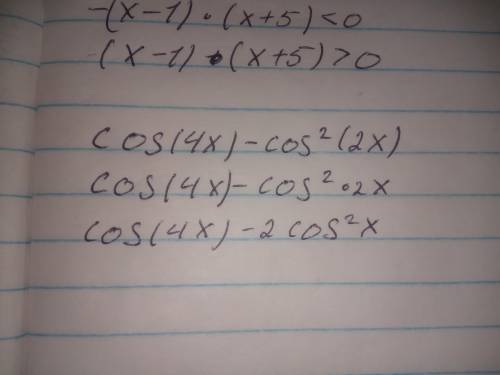 -(x-1)·(x+5)<0
(x-1)·(x+5)>0
cos(4x)-cos²(2x)
cos(4x)-cos²·2x
cos(4x)-2cos²x